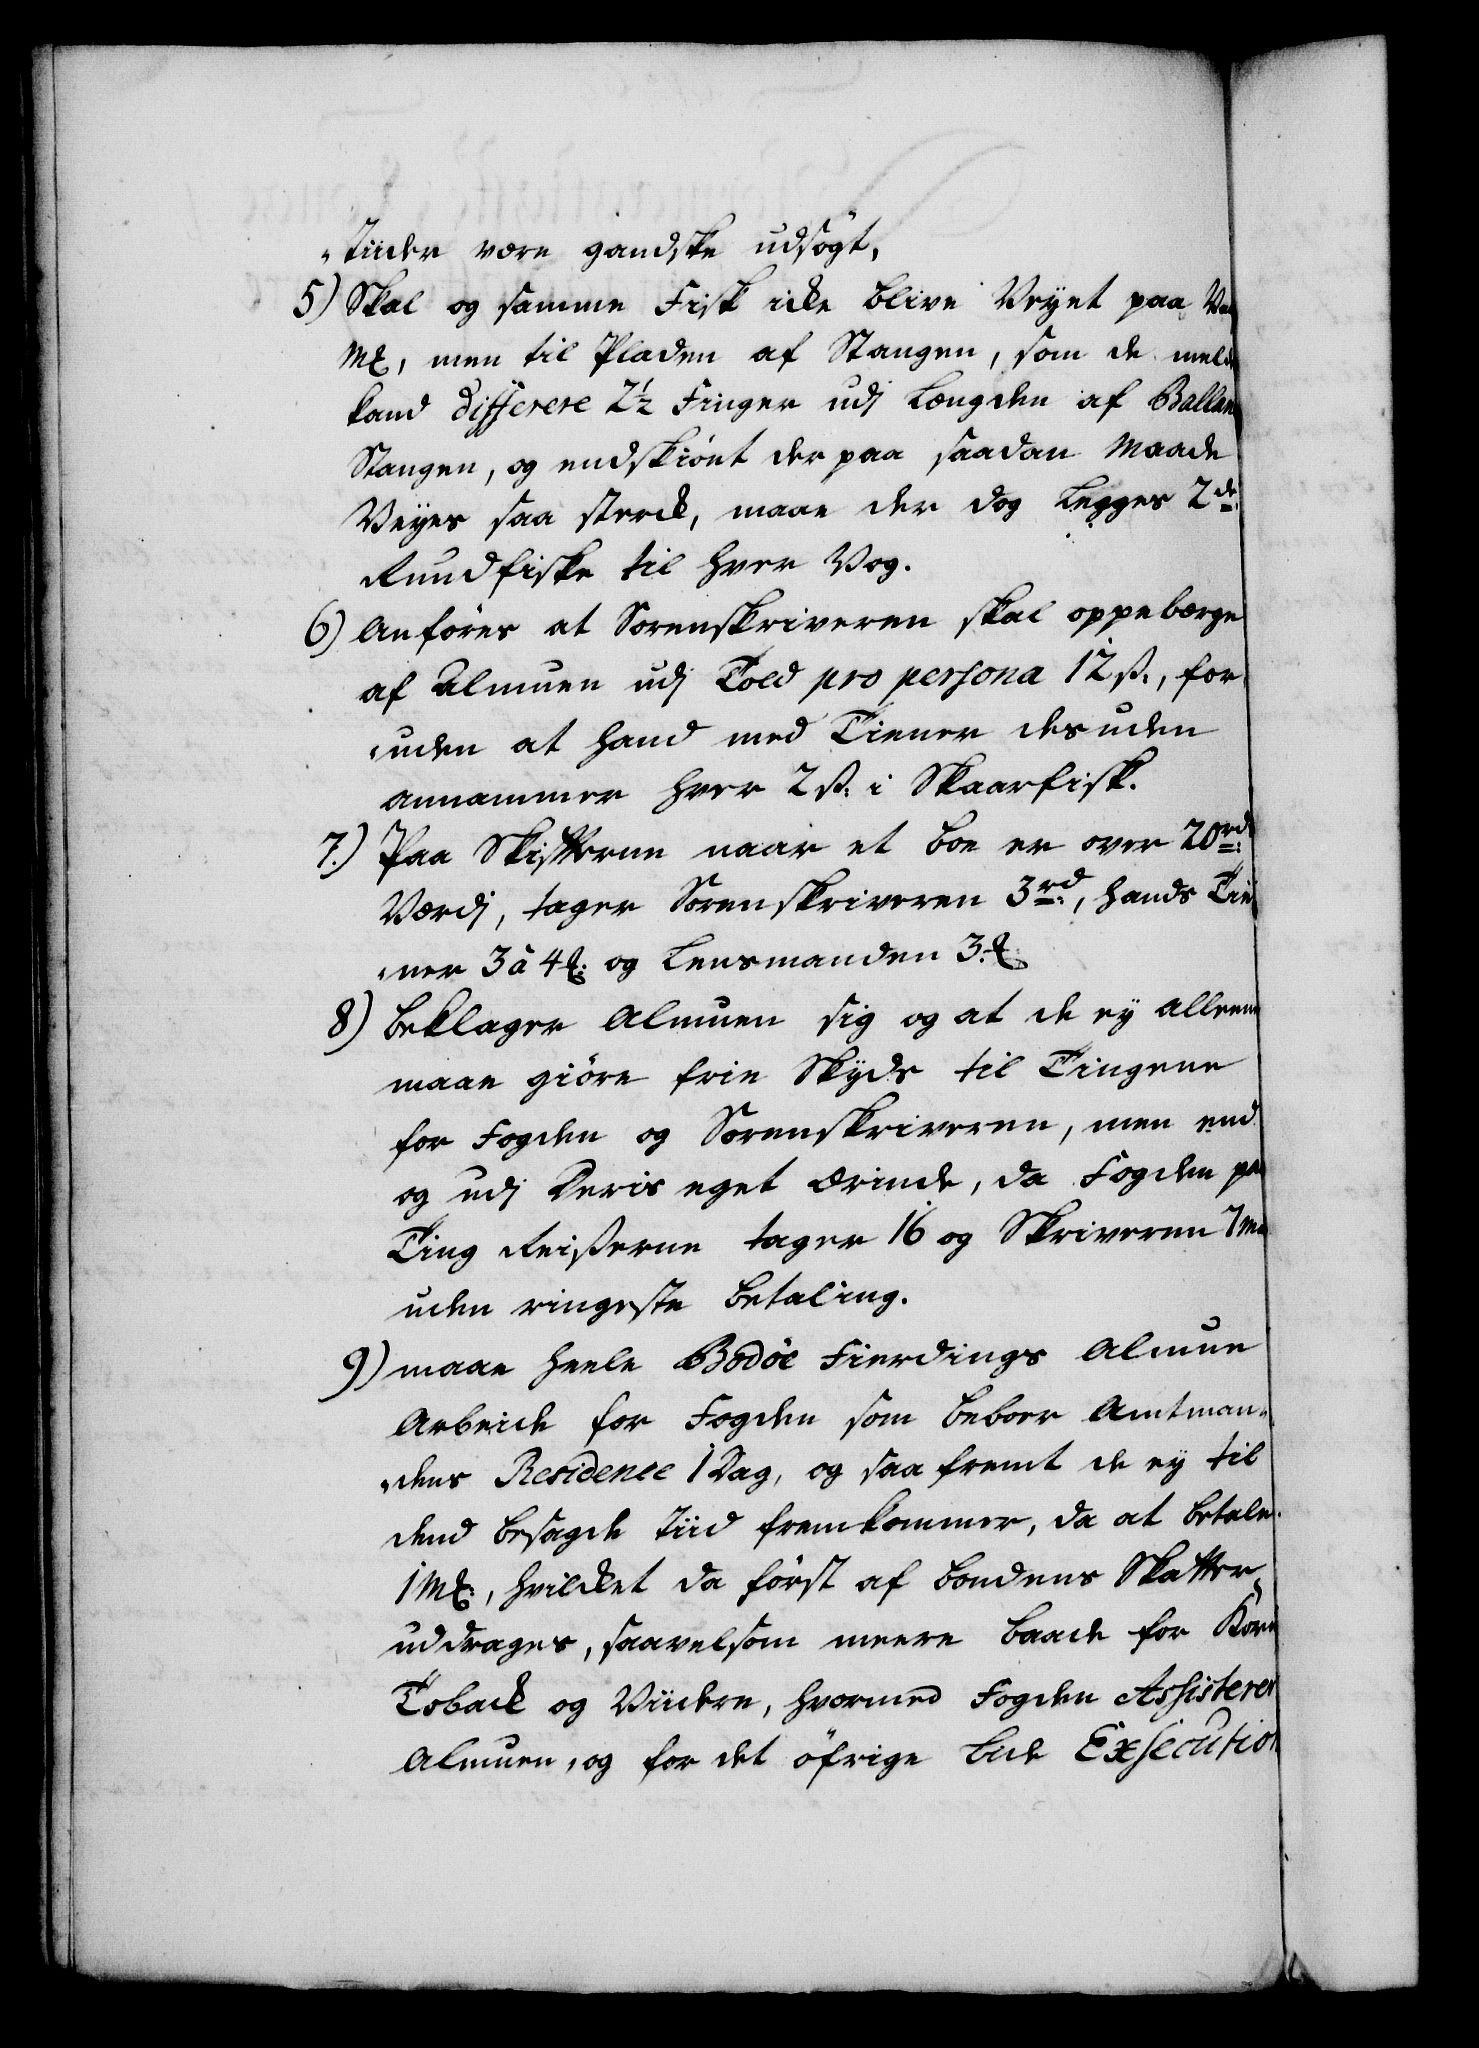 „Tiider være gandske udsøgt,
5) Skal og samme Fisk icke blive Veyet paa
Mk, men til Pladen af Stangen, som de meld
kand differere 2½ Finger udj Længden af Ballan
Stangen, og endskiønt der paa saadan Maade
Veyes saa sterck, maae der dog Legges 2de
Rundfiske til hver Vog.
6) Anføres at Sorenskriveren skal oppebærge
af Almuen udj Told pro persona 12 ß., for
„uden at hand med Tiener desuden
annammer hver 2 ß. i Skaarfisk.
7.) Paa Skifterne naar et boe er over 20 rd:
Værdj, tager Sorenskriveren 3 rd:, hands Tie
„ner 3 à 4 k: og Lensmanden 3. k
8) beklager Almuen sig og at de ey alleene
maae giøre frie Skyds til Tingene
for Fogden og Sorenskriveren, men end
og udj Deris eget Ærinde, da Fogden paa
Ting Reiserne tager 16 og Skriveren 7
uden ringeste betaling.
9) maae heele Bodøe Fierdings Almue
Arbeide for Fogden som beboer Amtman„
„dens Residence 1 Dag, og saa fremt de ey til
dend besagde Tiid fremkommer, da at betale
1 Mk:, hvilcket da først af bondens Skatter
uddrages, saavelsom meere baade for Korn
Toback og Viidere, hvormed Fogden Assisterer
Almuen, og for det øfrige lide Exsecution